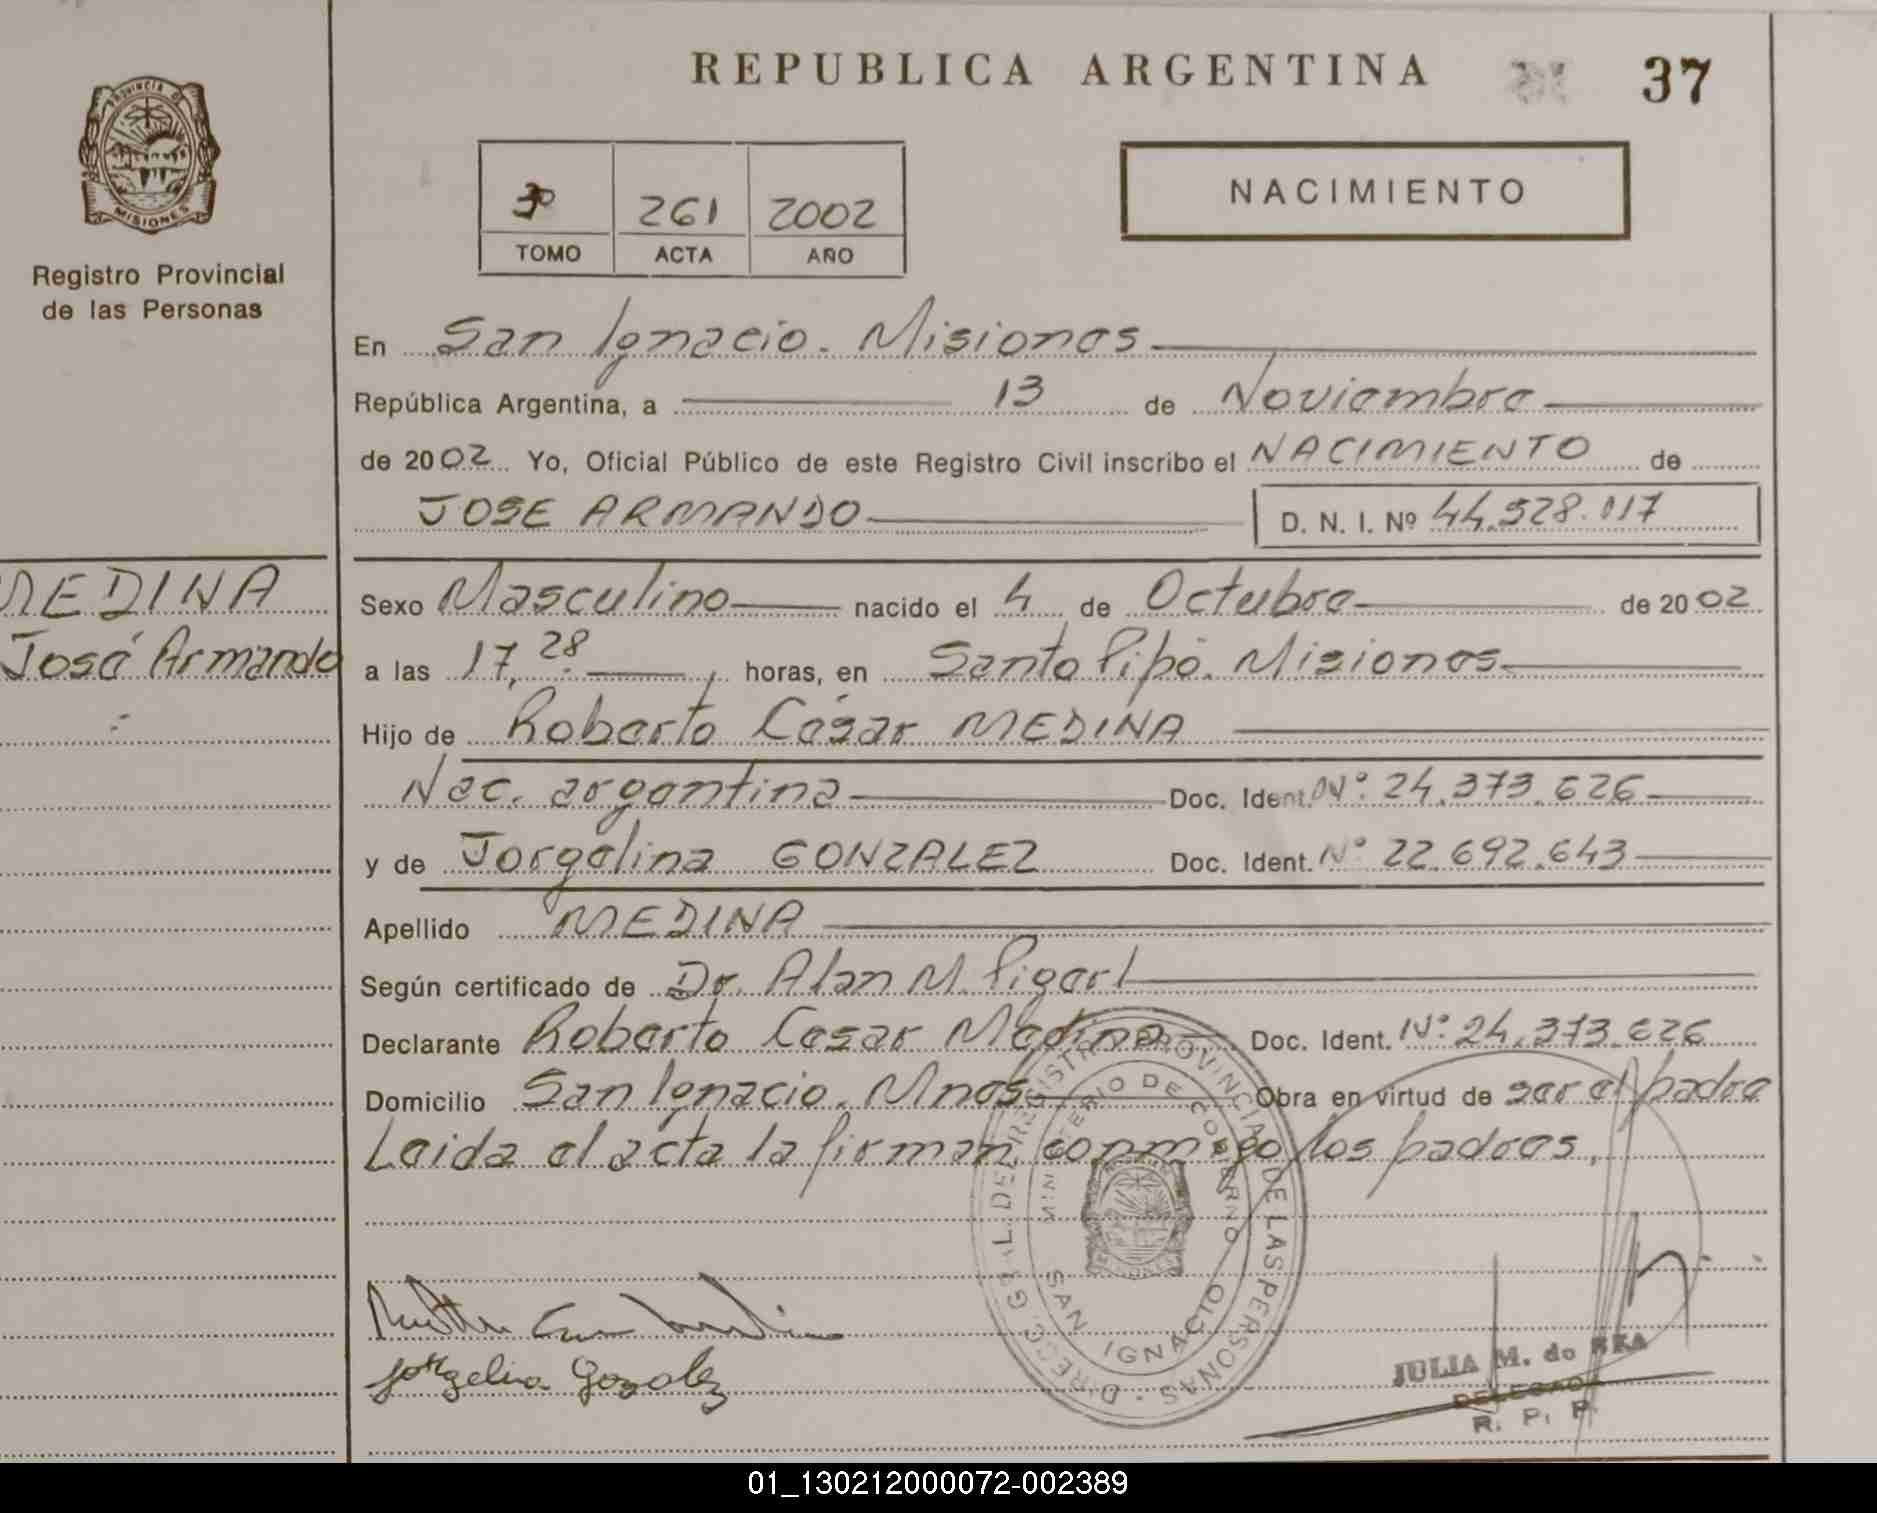 REPUBLICA ARGENTINA 37
PROVINCIA DE
MISIONES
Registro Provincial
de las Personas
3º 261 2002
TOMO ACTA AÑO
NACIMIENTO
En San Ignacio. Misiones
República Argentina, a 13 de Noviembre
de 2002 Yo, Oficial Público de este Registro Civil inscribo el NACIMIENTO de
JOSE ARMANDO D. N. I. Nº 44.528.017
MEDINA
José Armando
Sexo Masculino nacido el 4 de Octubre de 2002
a las 17,28 horas, en Santo Pipó. Misiones
Hijo de Roberto César MEDINA
Nac. argentina Doc. Ident. Nº: 24.373.626
y de Jorgelina GONZALEZ Doc. Ident. Nº 22.692.643
Apellido MEDINA
Según certificado de Dr. Alan M. Pigerl
Declarante Roberto Cesar Medina Doc. Ident. Nº: 24.373.626
Domicilio San Ignacio. Mnes Obra en virtud de ser el padre
Leida el acta la firman conmigo los padres.
DIRECC. GRAL. DEL REGISTRO PROVINCIAL DE LAS PERSONAS
MINISTERIO DE GOBIERNO
SAN IGNACIO
Jorgelina Gonzalez
JULIA M. do
DELEGADO
R. P. P.
01_130212000072-002389